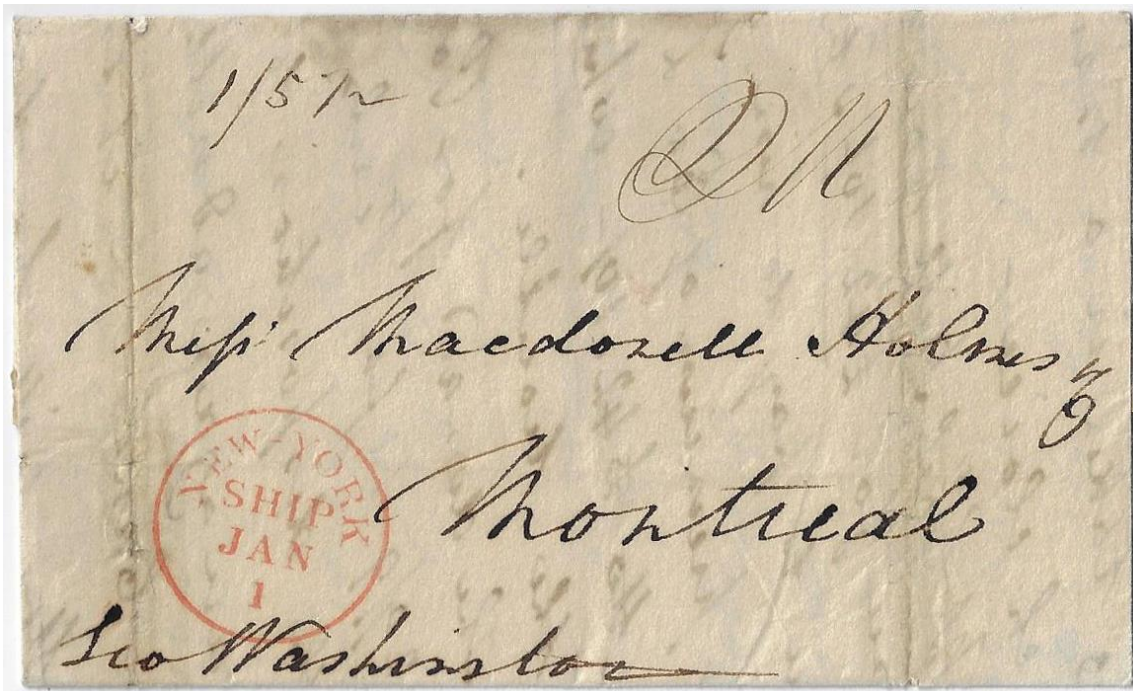 1/5 1/2
Messrs Macdonell Holmes & Co
Montreal
NEW-YORK
SHIP
JAN
1
Geo Washington